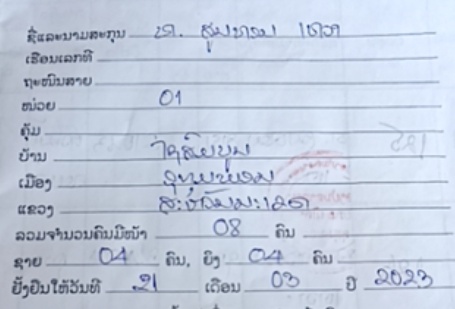 ຊື່ແລະນາມສະກຸນ ທ. ສູນທອນ ເທວາ
ເຮືອນເລກທີ
ຖະໜົນສາຍ
ໜ່ວຍ 01
ຄຸ້ມ
ບ້ານ ໄຊສົມບູນ
ເມືອງ ອຸທຸມພອນ
ແຂວງ ສະຫວັນນະເຂດ
ລວມຈຳນວນຄົນມີໜ້າ 08 ຄົນ
ຊາຍ 04 ຄົນ, ຍິງ 04 ຄົນ
ຢັ້ງຢືນໃຫ້ວັນທີ 21 ເດືອນ 03 ປີ 2023